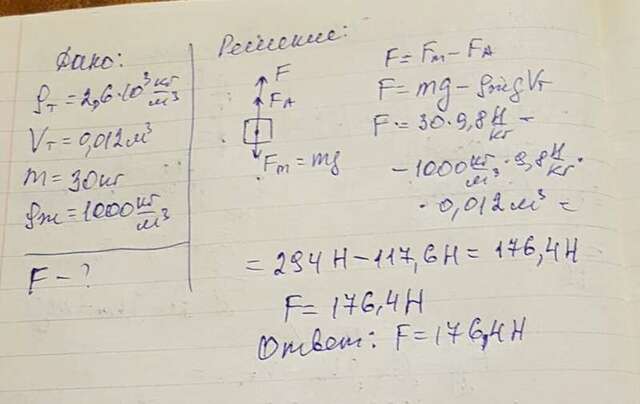 Дано:
ρт = 2,6·10³ кг/м³
Vт = 0,012 м³
m = 30 кг
ρж = 1000 кг/м³
F - ?
Решение:
F
FA
Fт = mg
F = Fт - FA
F = mg - ρжgVт
F = 30·9,8 Н/кг -
- 1000 кг/м³ · 9,8 Н/кг ·
· 0,012 м³ =
= 294 Н - 117,6 Н = 176,4 Н
F = 176,4 Н
Ответ: F = 176,4 Н